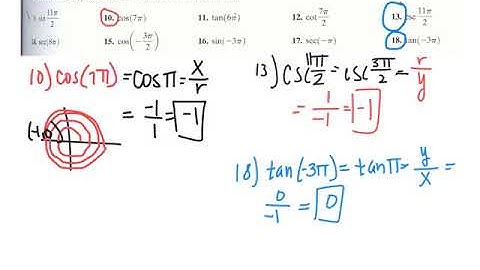 sin 11π/2 10. cos(7π) 11. tan(6π) 12. cot 7π/2 13. csc 11π/2
sec(8π) 15. cos(-3π/2) 16. sin(-3π) 17. sec(-π) 18. tan(-3π)
10) cos(7π) = cos π = x/r
= -1/1 = -1
(-1,0)
13) csc 11π/2 = csc 3π/2 = r/y
= 1/-1 = -1
18) tan(-3π) = tan π = y/x =
0/-1 = 0